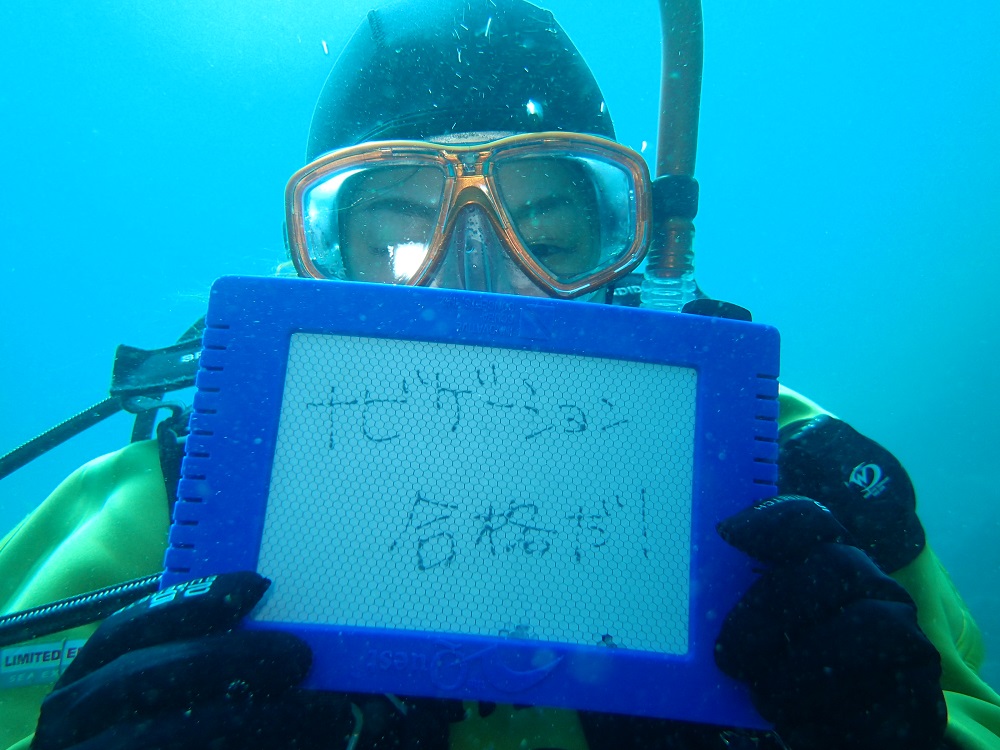 ナビゲーション
合格だ!
LIMITED E